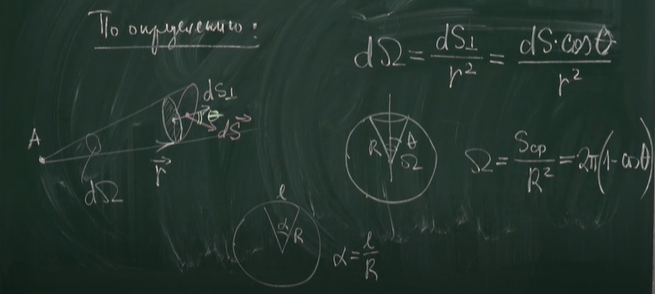 По определению:
dΩ = dS⊥/r² = dS·cosθ/r²
dS⊥
θ
dS⃗
A
dΩ
r⃗
R
θ
Ω
Ω = Sср/R² = 2π(1-cosθ)
l
α
R
α = l/R